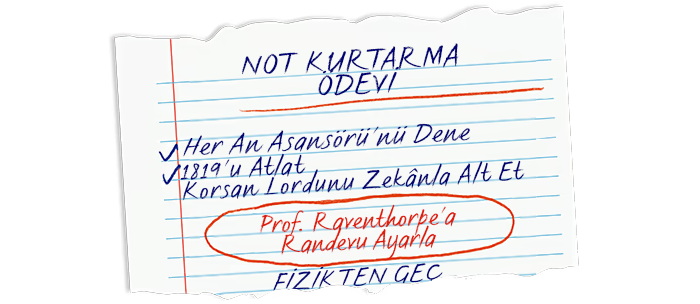 NOT KURTARMA
ÖDEVİ
Her An Asansörü'nü Dene
1819'u Atlat
Korsan Lordunu Zekânla Alt Et
Prof. Raventhorpe'a
Randevu Ayarla
FİZİKTEN GEÇ